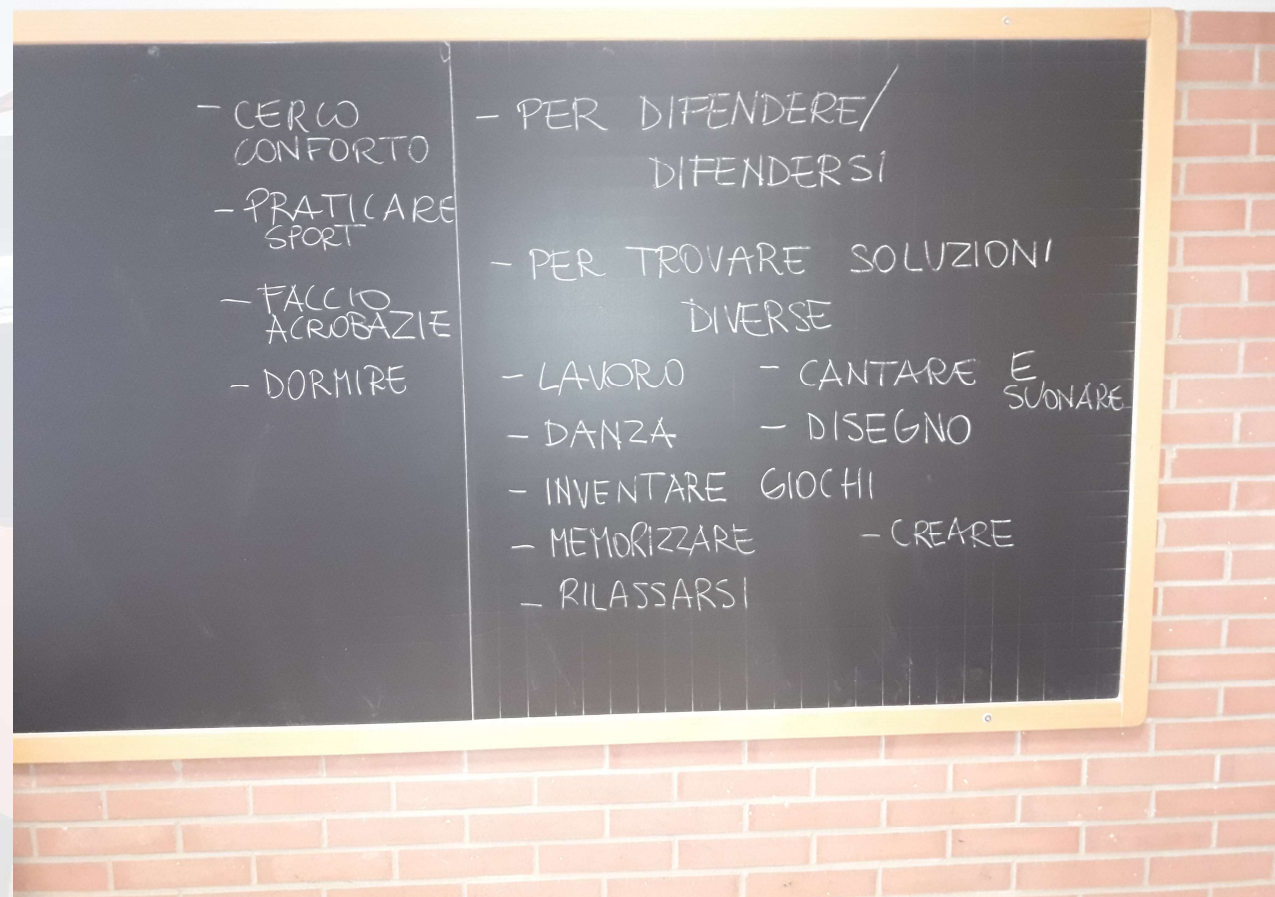 - CERCO
CONFORTO
- PRATICARE
SPORT
- FACCIO
ACROBAZIE
- DORMIRE
- PER DIFENDERE/
DIFENDERSI
- PER TROVARE SOLUZIONI
DIVERSE
- LAVORO - CANTARE E
SUONARE
- DANZA - DISEGNO
- INVENTARE GIOCHI
- MEMORIZZARE - CREARE
- RILASSARSI